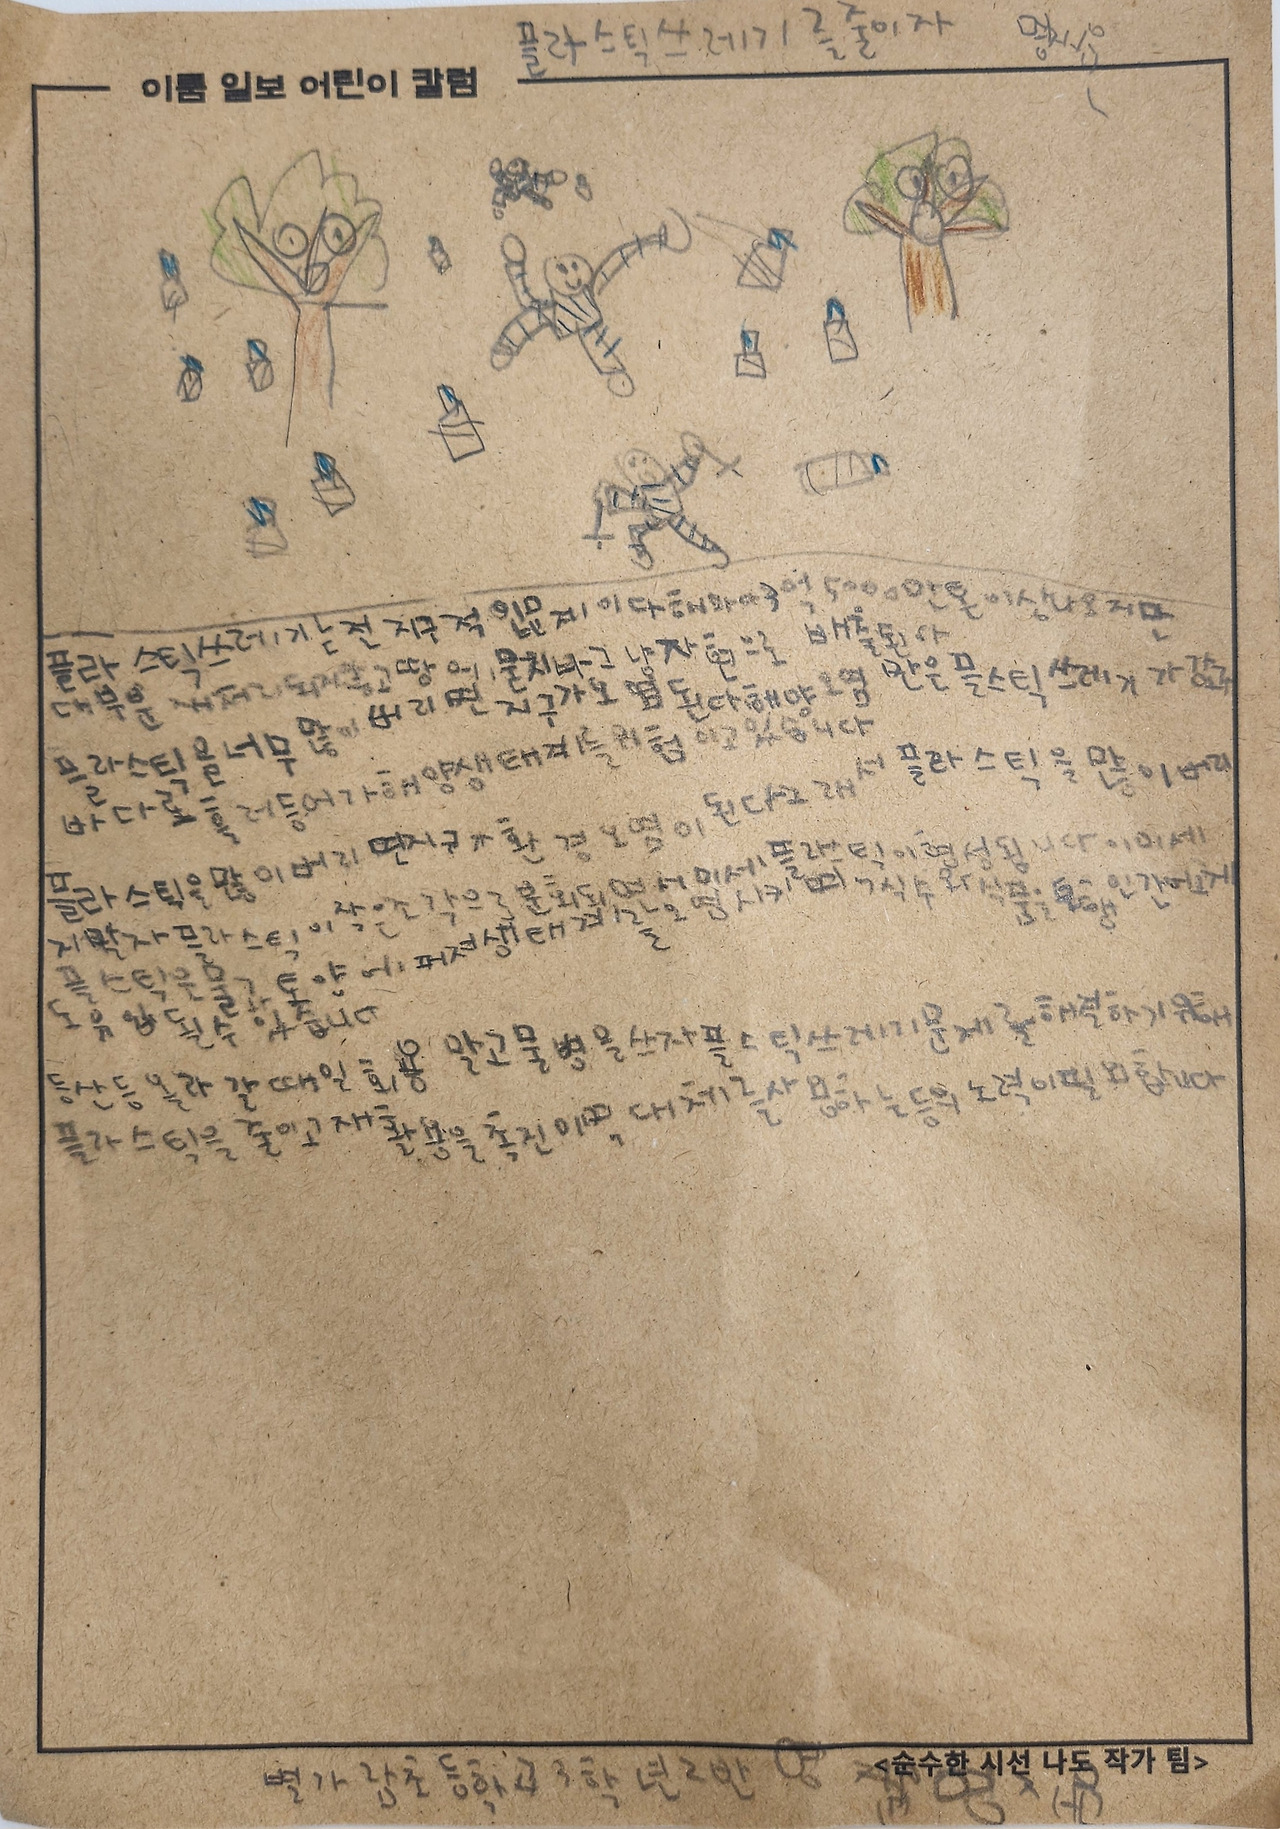 플라스틱쓰레기를줄이자
이룸 일보 어린이 칼럼
플라 스틱쓰레기는전 지구적 인문제 이다해마다3억 5000만톤이상나오지만
대부분 재처리되지않고땅에 묻치바그냥자연으로 배출된다
플라스틱을너무 많이 버리면 지구가오염된다해양오염 만은플스틱쓰레기가강과
바다로흘러들어가해양생태계를위험이고있습니다
플라스틱을많이버리면지구가환경오염이된다그래서플라스틱을많이버리
지말자플라스틱이작은조각으로분화되면서미세플라스틱이형성됩니다이미세
플스틱은물과토양에퍼져생태계를오염시키며식수와식품을통해인간에게
도유입될수있습니다
등산등올라갈때일회용말고물병을쓰자플스틱쓰레기문제를해결하기위해
플라스틱을줄이고재활용을촉진이며대체를사용하는등의노력이필요합니다
<순수한 시선 나도 작가 팀>
별가람초등학교3학년2반